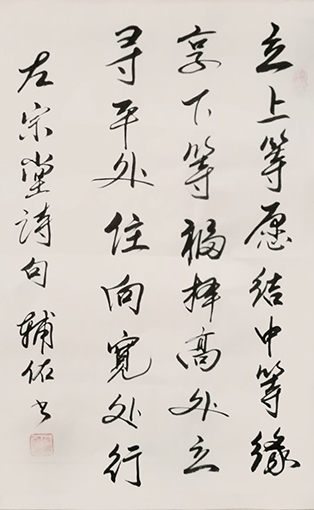 立上等愿结中等缘
享下等福择高处立
寻平处住向宽处行
左宗棠诗句 辅佑书